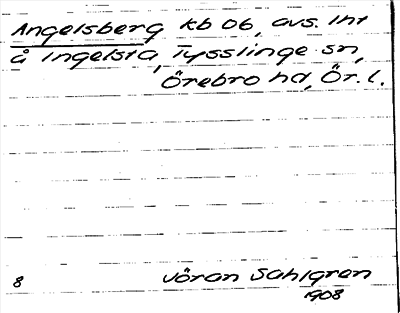 Angelsberg kb 06, avs. lht
å Ingelsta, Tysslinge sn,
Örebro hd, Ör. l.
8
Jöran Sahlgren
1908